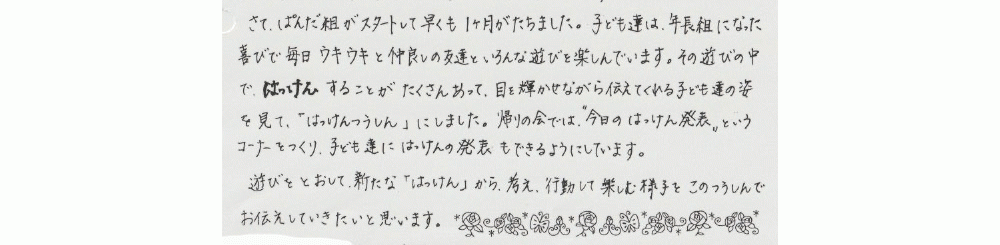 さて、ぱんだ組がスタートして早くも1ヶ月がたちました。子ども達は、年長組になった
喜びで毎日ウキウキと仲良しの友達といろんな遊びを楽しんでいます。その遊びの中
で、はっけんすることがたくさんあって、目を輝かせながら伝えてくれる子ども達の姿
を見て、「はっけんつうしん」にしました。帰りの会では、“今日のはっけん発表”という
コーナーをつくり、子ども達にはっけんの発表もできるようにしています。
遊びをとおして、新たな「はっけん」から、考え、行動して楽しむ様子をこのつうしんで
お伝えしていきたいと思います。